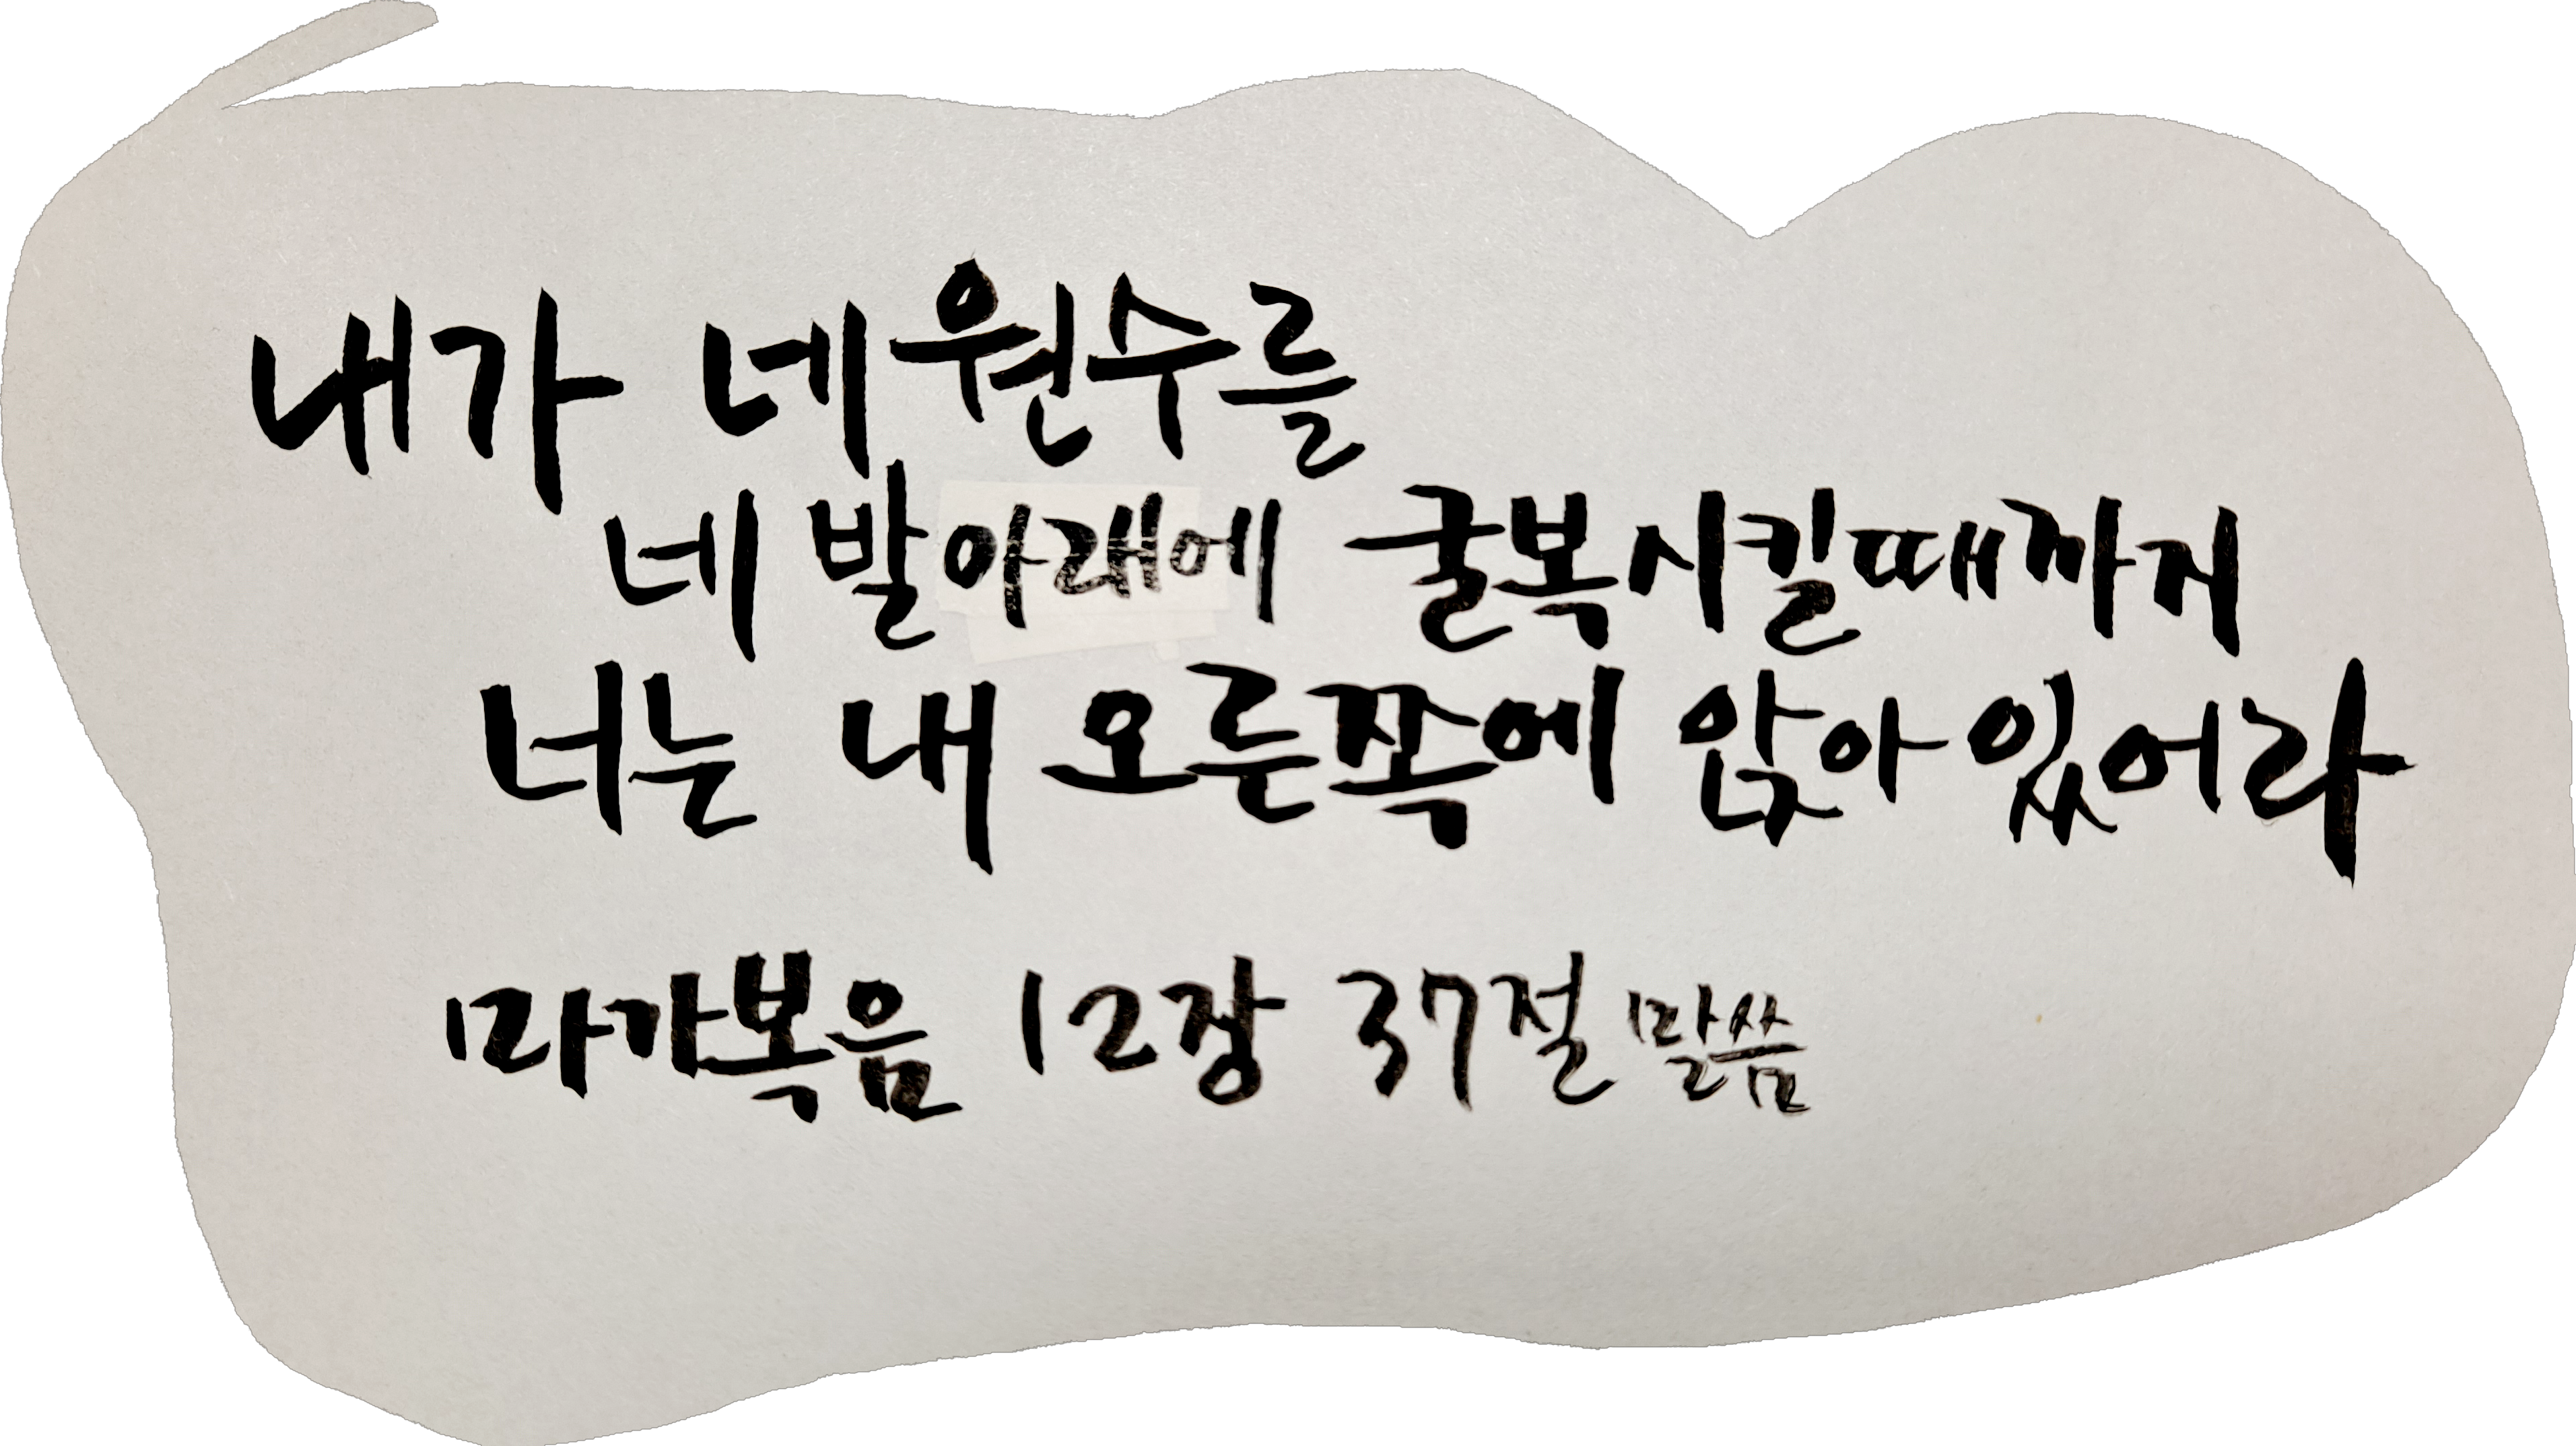 내가 네 원수를
네 발아래에 굴복시킬때까지
너는 내 오른쪽에 앉아 있어라
마가복음 12장 37절 말씀